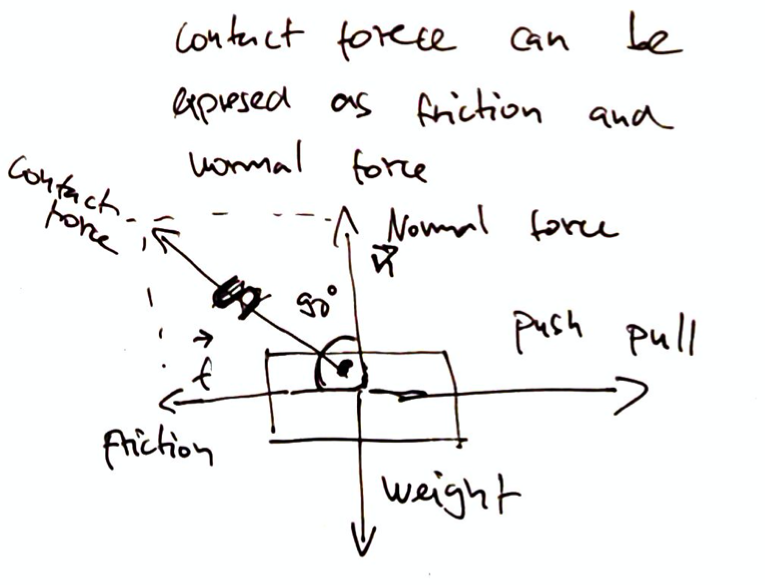 Contact forece can be
expresed as friction and
normal force
Contact
force
Normal force
n
90°
push pull
f
friction
weight